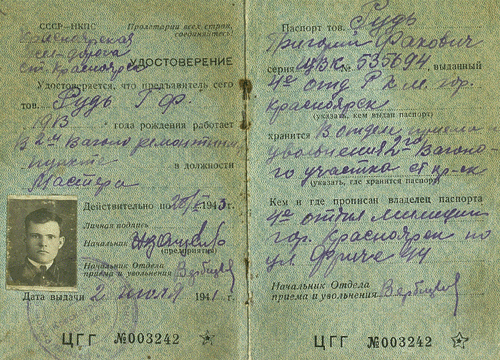 СССР—НКПС Пролетарии всех стран, соединяйтесь!
Красноярская
жел-дорога
ст. Красноярск
УДОСТОВЕРЕНИЕ
Удостоверяется, что предъявитель сего
тов. Рудь Г Ф.
1913 года рождения работает
в 2м Вагоноремонтном
пункте в должности
Мастера
Действительно по 1943 г.
Личная подпись
Начальник
(предприятия)
Начальник Отдела
приема и увольнения Вербицкий
Дата выдачи 2 июля 1941 г.
ЦГГ №003242
Паспорт тов. Рудь
Григорий Фахович
серия ЦВК № 535694 выданный
4е отд Р К м. гор.
Красноярск
(указать, кем выдан паспорт)
хранится В отделе приема
увольнения 2го Вагоно-
го участка ст Кр-ск
(указать, где хранится паспорт)
Кем и где прописан владелец паспорта
4е отдел милиции
гор. Красноярск по
ул. Фриче 44
Начальник Отдела
приема и увольнения Вербицкий
ЦГГ №003242